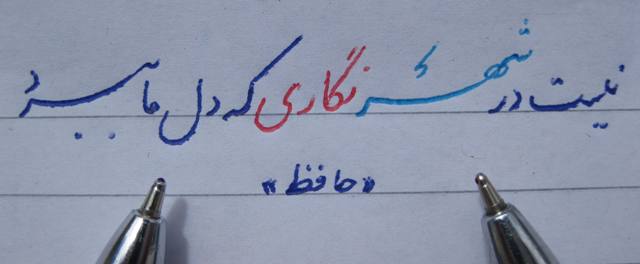 نیست در شهر نگاری که دل ما ببرد
«حافظ»